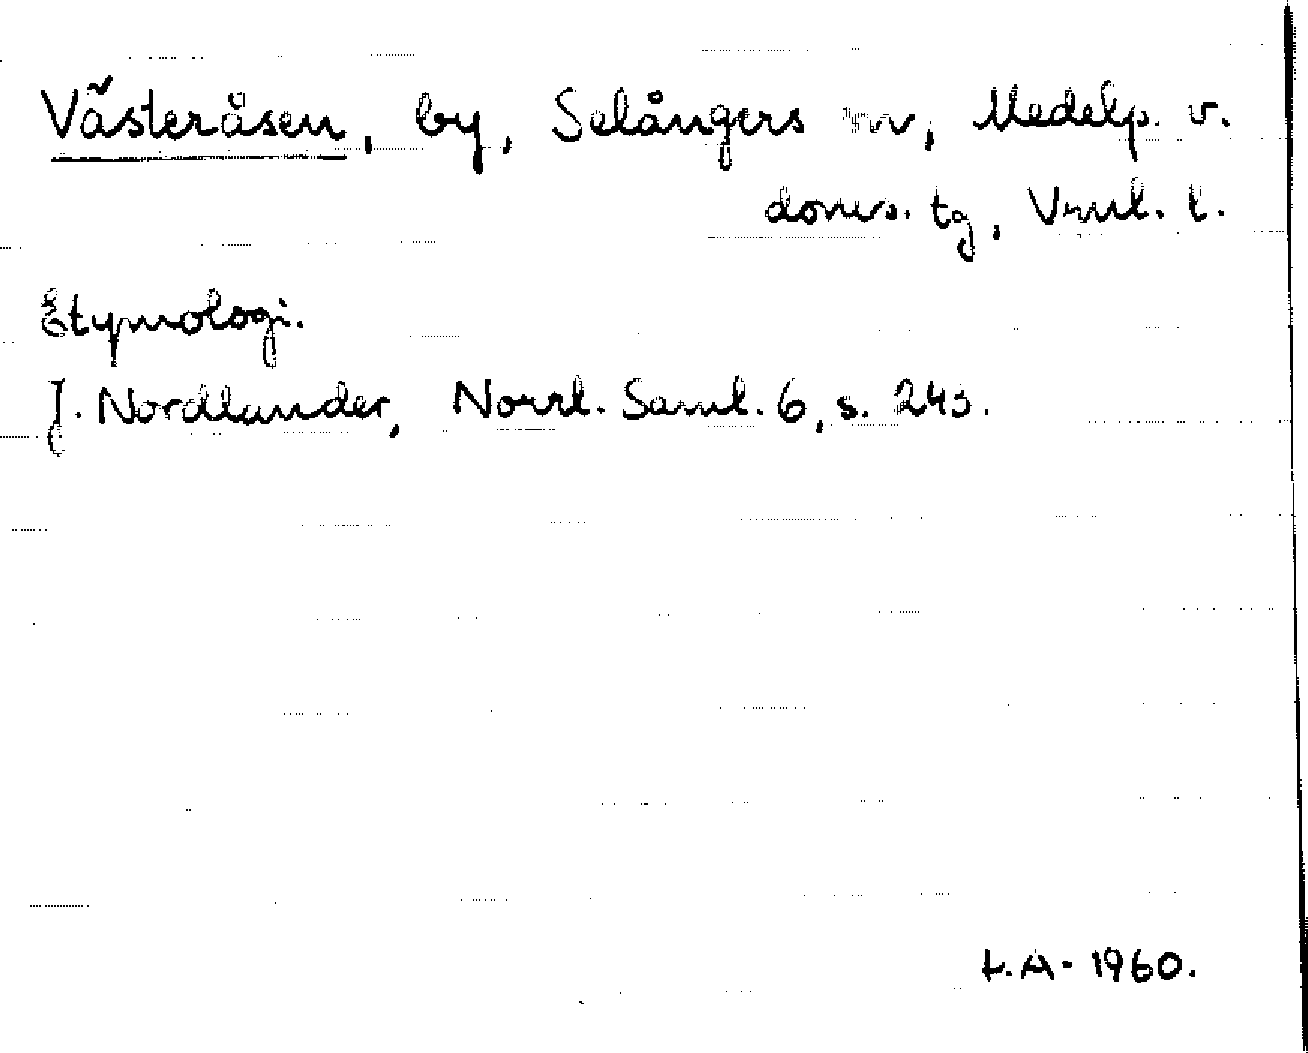 Västeråsen, by, Selångers sn, Medelp. v.
doms. tg, Vrnl. l.
Etymologi.
J. Nordlander, Norrl. Saml. 6, s. 243.
L.A. 1960.